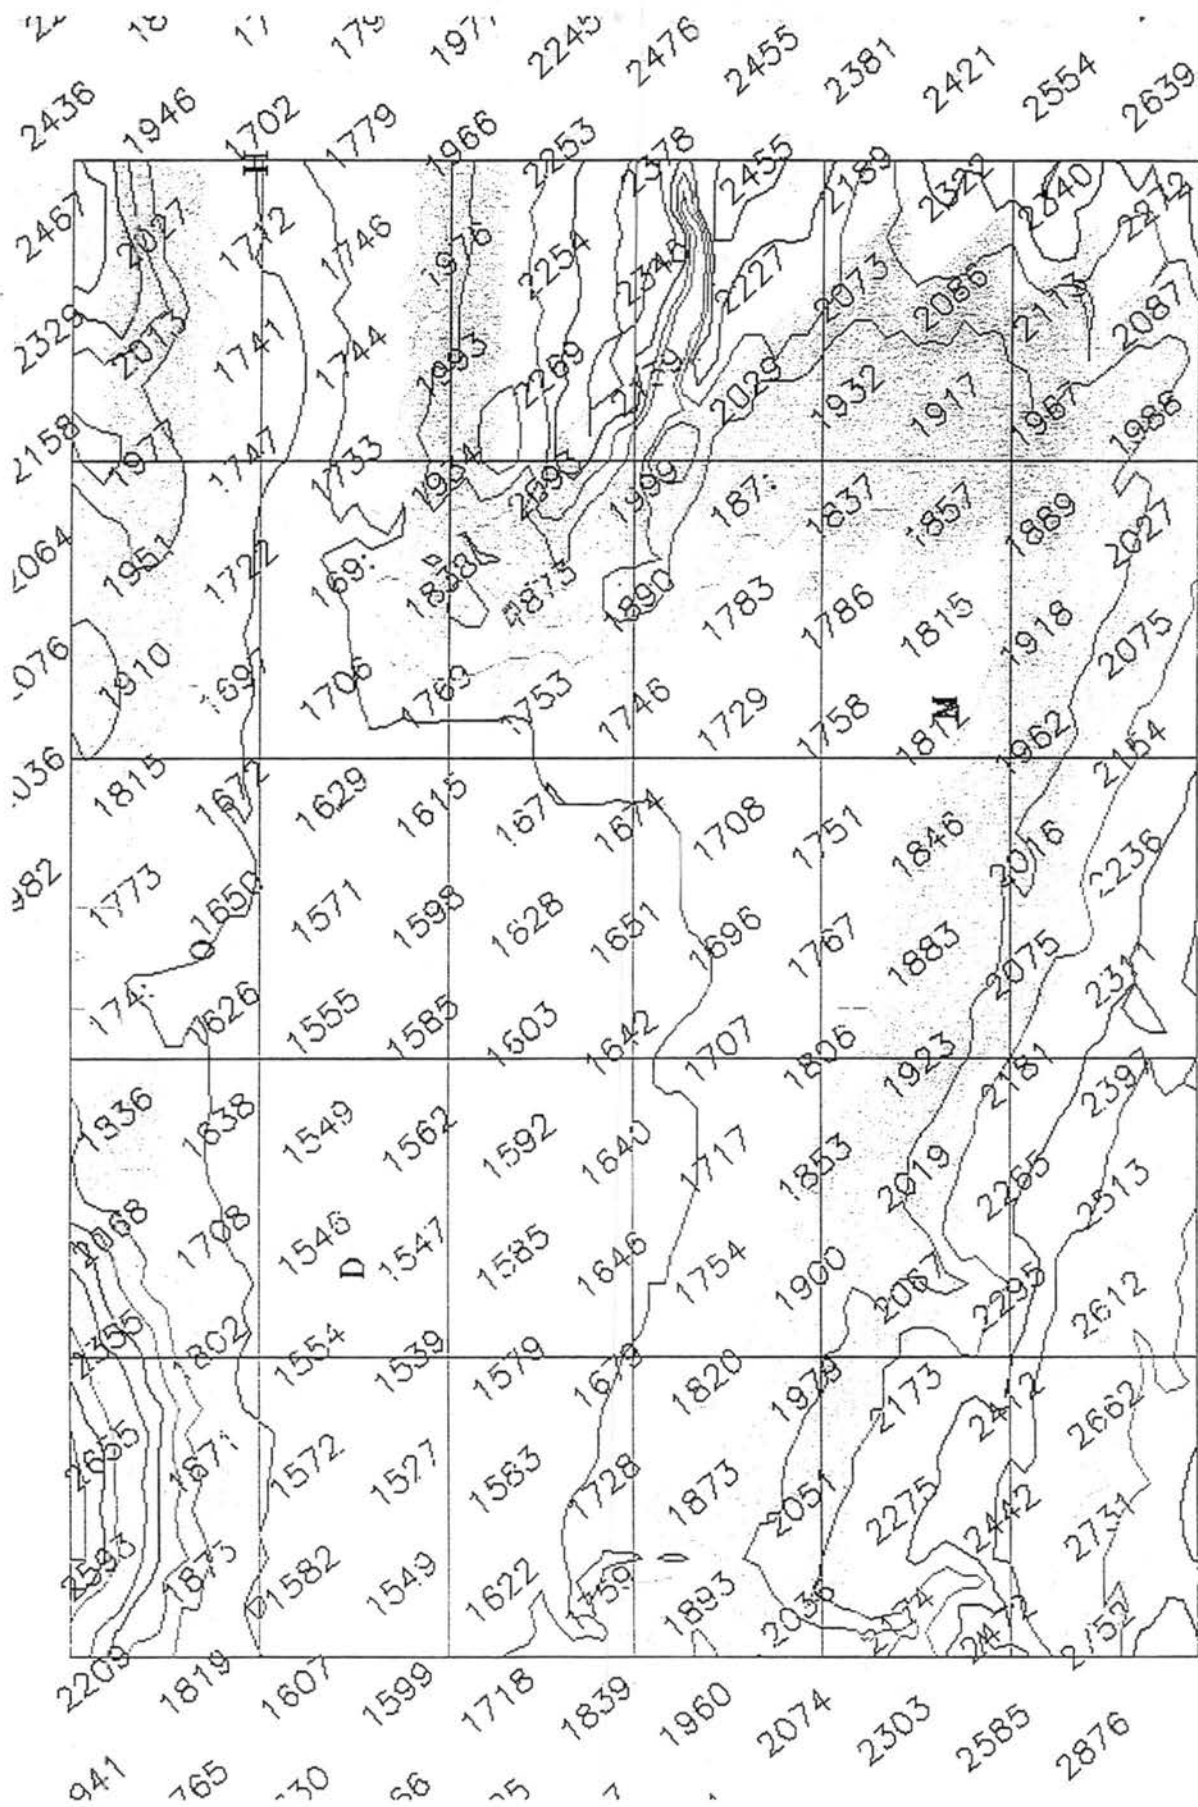 2245 2476 2455 2381 2421 2554 2639
2436 1946 1702 1779 1966 2253 2378 2455 2189 2322 2340 2272
H
2467 2027 1712 1746 1976 2254 2346 2227 2073 2086 2113 2087
2329 2013 1741 1744 1993 2269 2029 1932 1917 1967 1986
2158 1977 1747 1733 1934 2095 1999 187 1837 1857 1889 2027
2064 1951 1722 169 1838 1873 1890 1783 1786 1815 1918 2075
2076 1910 1697 1706 1763 1753 1746 1729 1758 1812 1962 2154
M
2036 1815 1672 1629 1615 167 1674 1708 1751 1846 2016 2236
982 1773 1650 1571 1598 1628 1651 1696 1767 1883 2075 2311
O
174 1626 1555 1585 1603 1642 1707 1806 1923 2181 2397
1836 1638 1549 1562 1592 1640 1717 1853 2019 2265 2513
2068 1708 1546 1547 1585 1646 1754 1900 2067 2295 2612
D
2355 1802 1554 1539 1579 1673 1820 1979 2173 2412 2662
2655 1671 1572 1527 1583 1728 1873 2051 2275 2442 2731
2593 1873 1582 1549 1622 1759 1893 2036 2174 2472 2752
2209 1819 1607 1599 1718 1839 1960 2074 2303 2585 2876
941 765